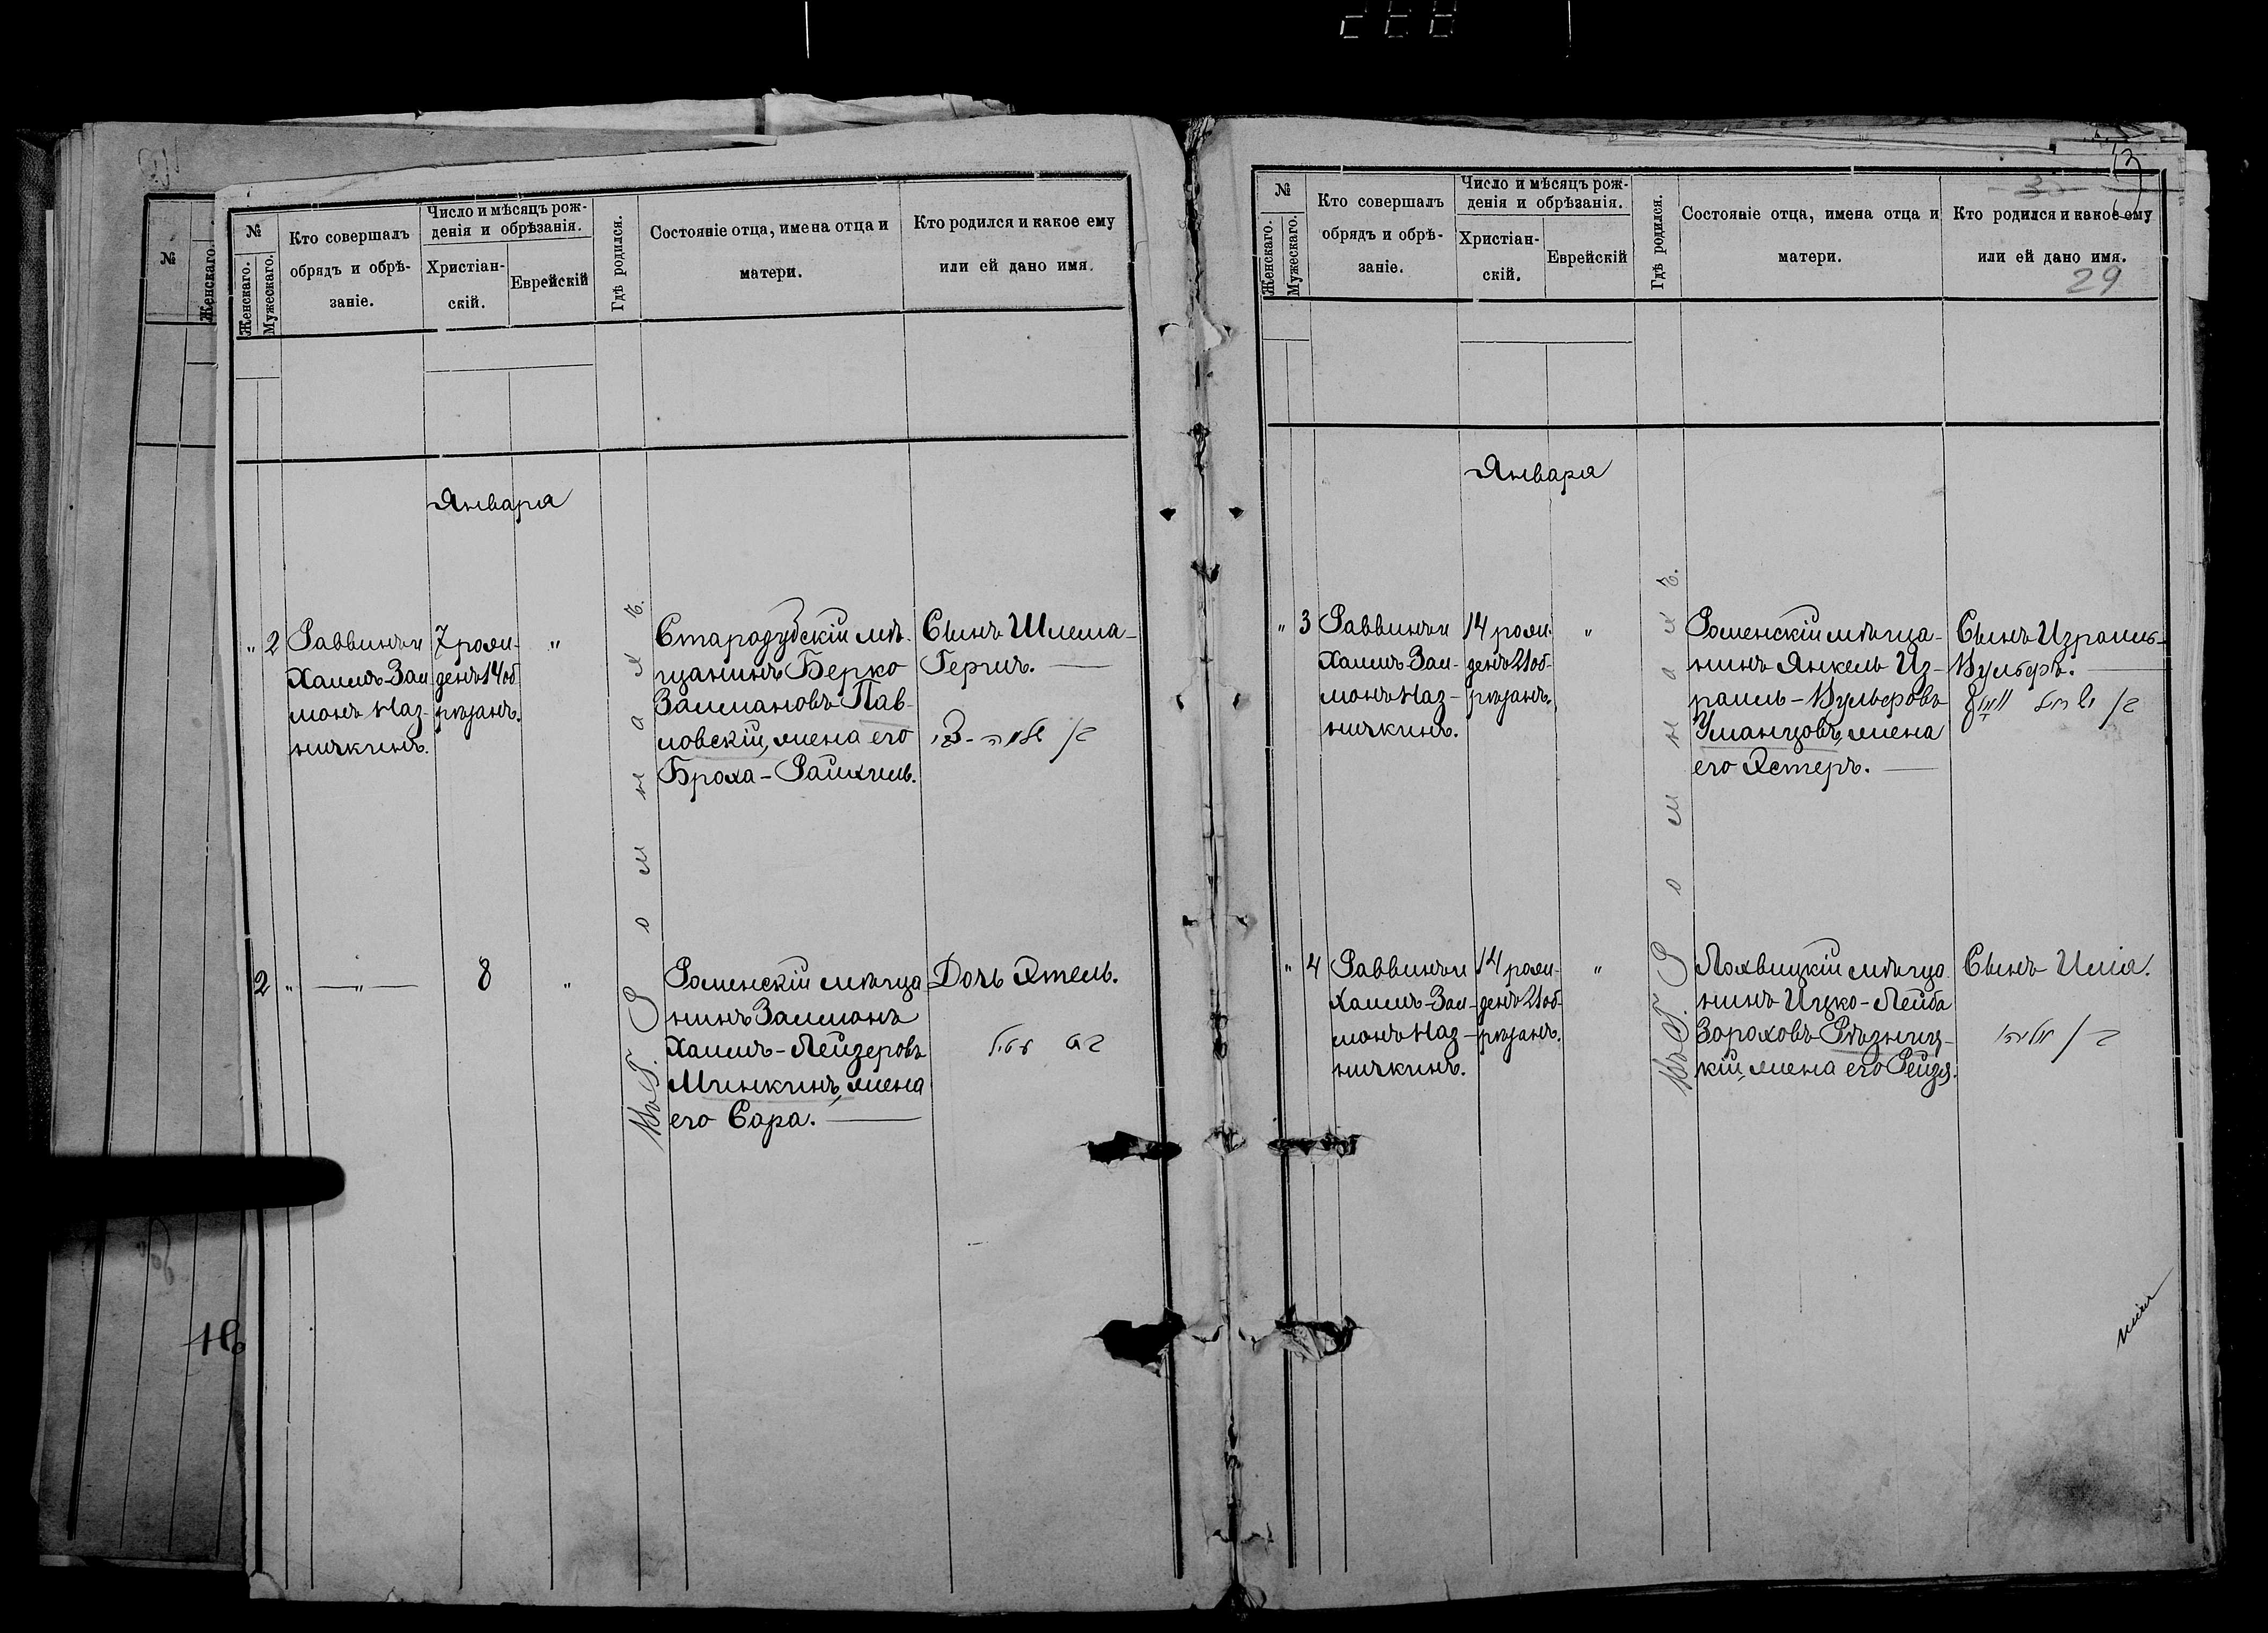 №
Женскаго.
№
Женскаго.
Мужескаго.
Кто совершалъ
обрядъ и обрѣ-
заніе.
Число и мѣсяцъ рож-
денія и обрѣзанія.
Христіан-
скій.
Еврейскій
Гдѣ родился.
Состояніе отца, имена отца и
матери.
Кто родился и какое ему
или ей дано имя.
Января
" 2
Раввинъ и
Хаимъ-Зал
монъ Наз-
ничкинъ.
7 рож-
денъ 14 об
рѣзанъ.
"
Въ Г. Ромнахъ.
Стародубскій мѣ-
щанинъ Берко
Залмановъ Пав-
ловскій, жена его
Броха-Райхиль.
Сынъ Шлема-
Гершъ.
2 "
"
8
"
Роменскій мѣща
нинъ Залмонъ
Хаимъ-Лейзеровъ
Минкинъ, жена
его Сара.
Дочь Этель.
№
Женскаго.
Мужескаго.
Кто совершалъ
обрядъ и обрѣ-
заніе.
Число и мѣсяцъ рож-
денія и обрѣзанія.
Христіан-
скій.
Еврейскій
Гдѣ родился.
Состояніе отца, имена отца и
матери.
Кто родился и какое ему
или ей дано имя.
29
Января
" 3
Раввинъ и
Хаимъ-Зал-
монъ Наз-
ничкинъ.
14 рож-
денъ 21 об-
рѣзанъ.
"
Въ Г. Ромнахъ.
Роменскій мѣща-
нинъ Янкель Из-
раиль-Вульфовъ
Уманцовъ, жена
его Эстеръ.
Сынъ Израиль-
Вульфъ.
" 4
Раввинъ и
Хаимъ-Зал-
монъ Наз-
ничкинъ.
14 рож-
денъ 21 об-
рѣзанъ.
"
Лохвицкій мѣща
нинъ Ицко-Лейба
Зороховъ Рѣзниц-
кій, жена его Рейзя.
Сынъ Илія.